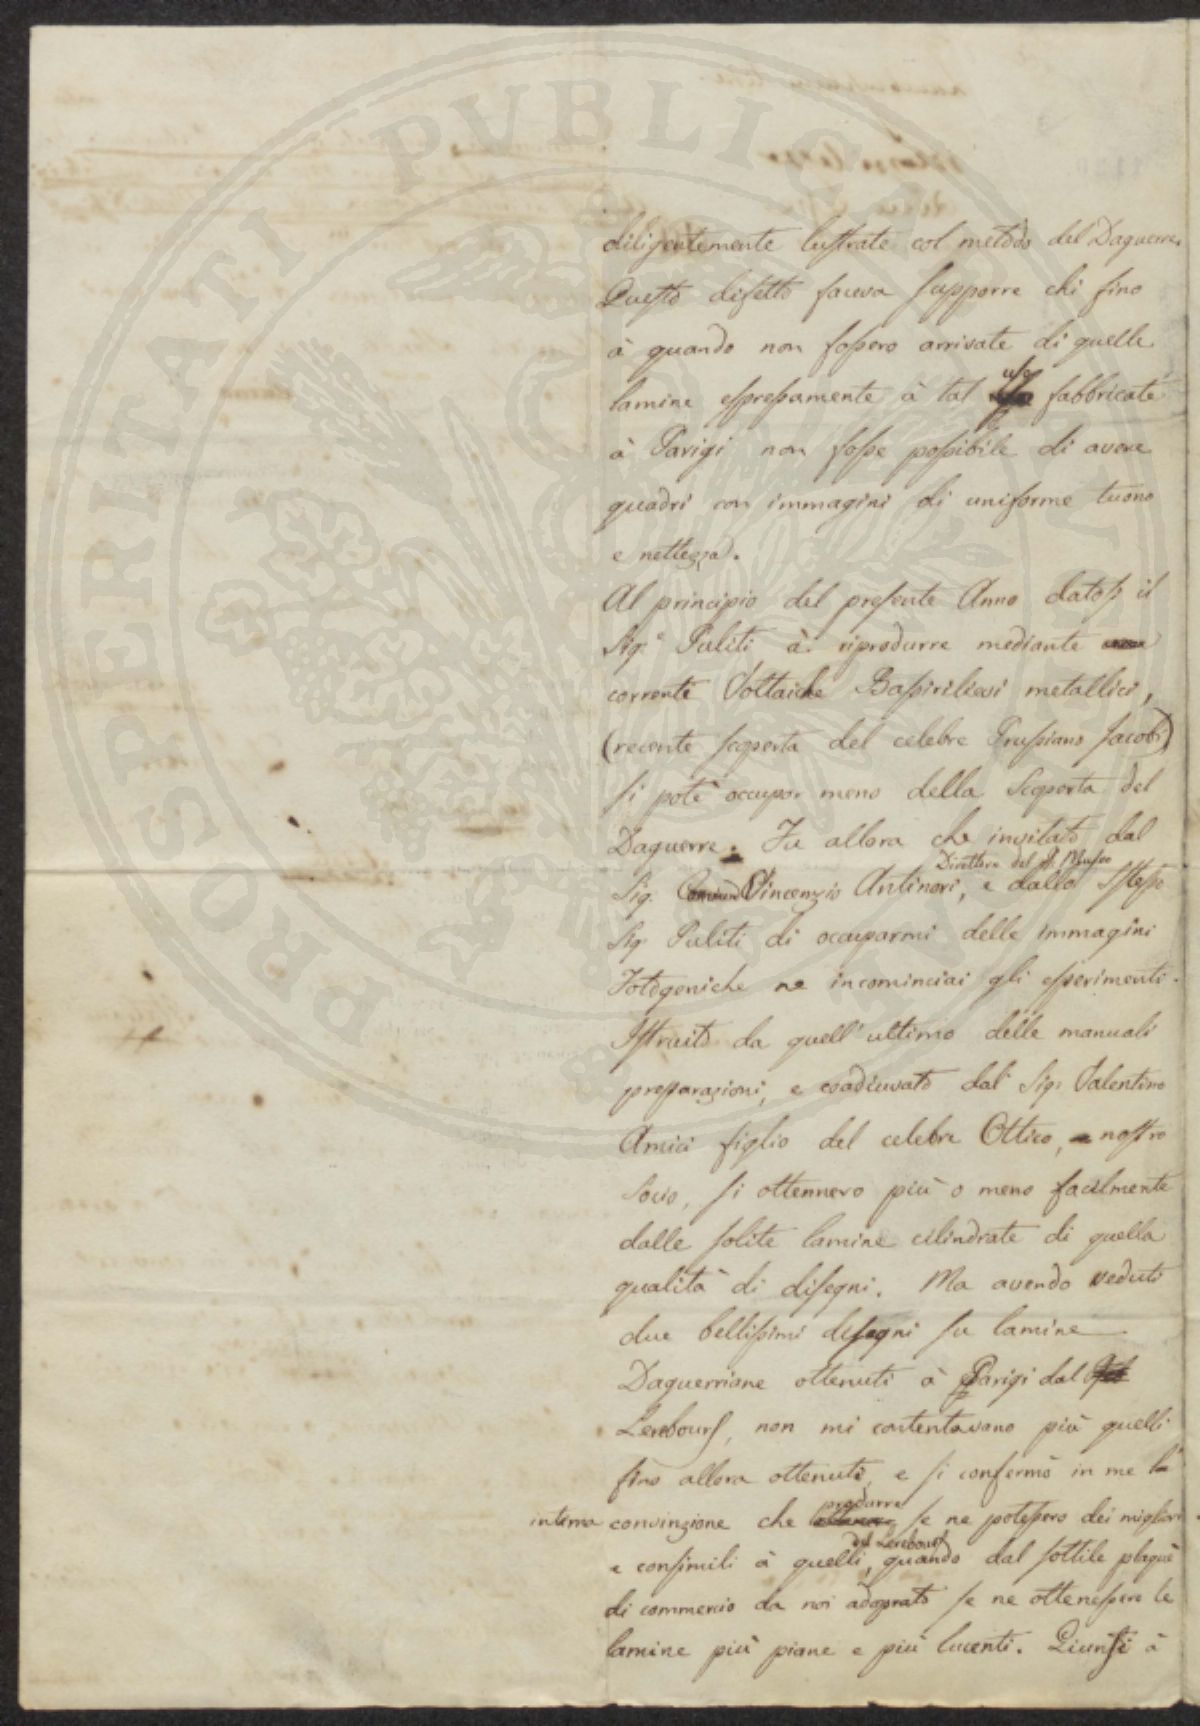 PROSPERITATI PUBLICAE
diligentemente lustrate col metodo del Daguerre.
Questo difetto faceva supporre chi fino
à quando non fossero arrivate di quelle
lamine espressamente à tal uso fabbricate
à Parigi non fosse possibile di avere
quadri con immagini di uniforme tuono
e nettezza.
Al principio del presente Anno datosi il
Sig.e Puliti à riprodurre mediante
corrente Voltaiche Bassirilievi metallici,
(recente scoperta del celebre Prussiano Jacobi)
si potè occupar meno della Scoperta del
Daguerre. Fu allora che invitato dal
Direttore del R. Museo
Sig. Vincenzio Antinori, e dallo Stesso
Sig. Puliti di occuparmi delle immagini
Fotogeniche ne incominciai gli esperimenti.
Istruito da quell'ultimo delle manuali
preparazioni, e coadiuvato dal Sig. Valentino
Amici figlio del celebre Ottico, nostro
Socio, si ottennero più o meno facilmente
dalle solite lamine cilindrate di quella
qualità di disegni. Ma avendo veduti
due bellissimi disegni su lamine
Daguerriane ottenuti à Parigi dal
Lerebours, non mi contentavano più quelli
fino allora ottenuti, e si confermò in me l'
produrre
interna convinzione che se ne potessero dei migliori
del Lerebours
e consimili à quelli, quando dal sottile plaquè
di commercio da noi adoprato se ne ottenessero le
lamine più piane e più lucenti. Giunsi à